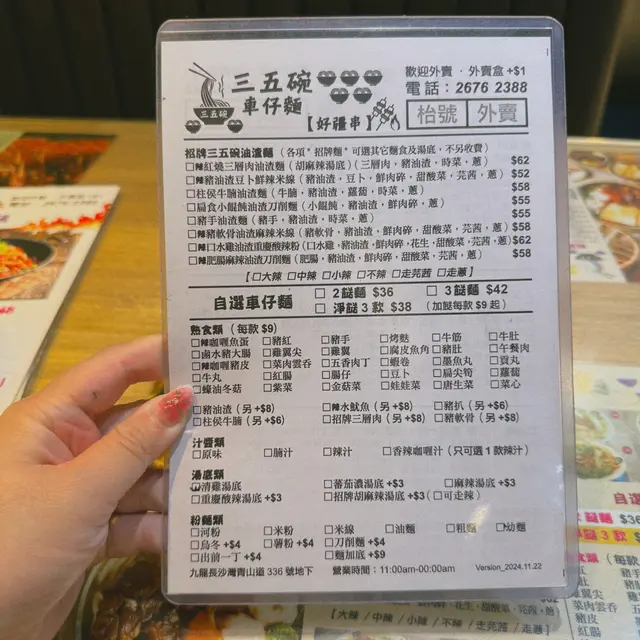 三五碗
車仔麵
三五碗
【好禮串】
歡迎外賣 · 外賣盒 +$1
電話：2676 2388
枱號 外賣
招牌三五碗油渣麵（各項“招牌麵”可選其它麵食及湯底，不另收費）
□辣紅燒三層肉油渣麵（胡麻辣湯底）（三層肉，豬油渣，時菜，蔥） $62
□辣豬油渣豆卜鮮辣米線（豬油渣，豆卜，鮮肉碎，甜酸菜，芫茜，蔥） $52
□柱侯牛腩油渣麵（牛腩，豬油渣，蘿蔔，時菜，蔥） $58
□扁食小餛飩油渣刀削麵（小餛飩，豬油渣，鮮肉碎，蔥） $55
□豬手油渣麵（豬手，豬油渣，時菜，蔥） $55
□辣豬軟骨油渣麻辣米線（豬軟骨，豬油渣，鮮肉碎，甜酸菜，芫茜，蔥） $58
□辣口水雞油渣重慶酸辣粉（口水雞，豬油渣，鮮肉碎，花生，甜酸菜，芫茜，蔥） $62
□辣肥腸麻辣油渣刀削麵（肥腸，豬油渣，鮮肉碎，甜酸菜，芫茜，蔥） $58
【□大辣 □中辣 □小辣 □不辣 □走芫茜 □走蔥】
自選車仔麵 □ 2餸麵 $36 □ 3餸麵 $42
□ 淨餸 3 款 $38 （加餸每款 $9 起）
熟食類（每款 $9）
□辣咖喱魚蛋 □豬紅 □豬手 □烤麩 □牛筋 □牛肚
□鹵水豬大腸 □雞翼尖 □雞翼 □腐皮魚角 □豬肚 □午餐肉
□辣咖喱豬皮 □菜肉雲吞 □五香肉丁 □蝦卷 □墨魚丸 □貢丸
□牛丸 □紅腸 □腸仔 □豆卜 □扁尖筍 □蘿蔔
□蠔油冬菇 □紫菜 □金菇菜 □娃娃菜 □唐生菜 □菜心
□豬油渣（另 +$8） □辣水魷魚（另 +$8） □豬扒（另 +$6）
□柱侯牛腩（另 +$6） □招牌三層肉（另 +$8） □豬軟骨（另 +$8）
汁醬類
□原味 □腩汁 □辣汁 □香辣咖喱汁（只可選 1 款辣汁）
湯底類
□清雞湯底 □蕃茄濃湯底 +$3 □麻辣湯底 +$3
□重慶酸辣湯底 +$3 □招牌胡麻辣湯底 +$3（□可走辣）
粉麵類
□河粉 □米粉 □米線 □油麵 □粗麵 □幼麵
□烏冬 +$4 □薯粉 +$4 □刀削麵 +$4
□出前一丁 +$4 □麵加底 +$9
九龍長沙灣青山道 336 號地下 營業時間：11:00am-00:00am Version_2024.11.22